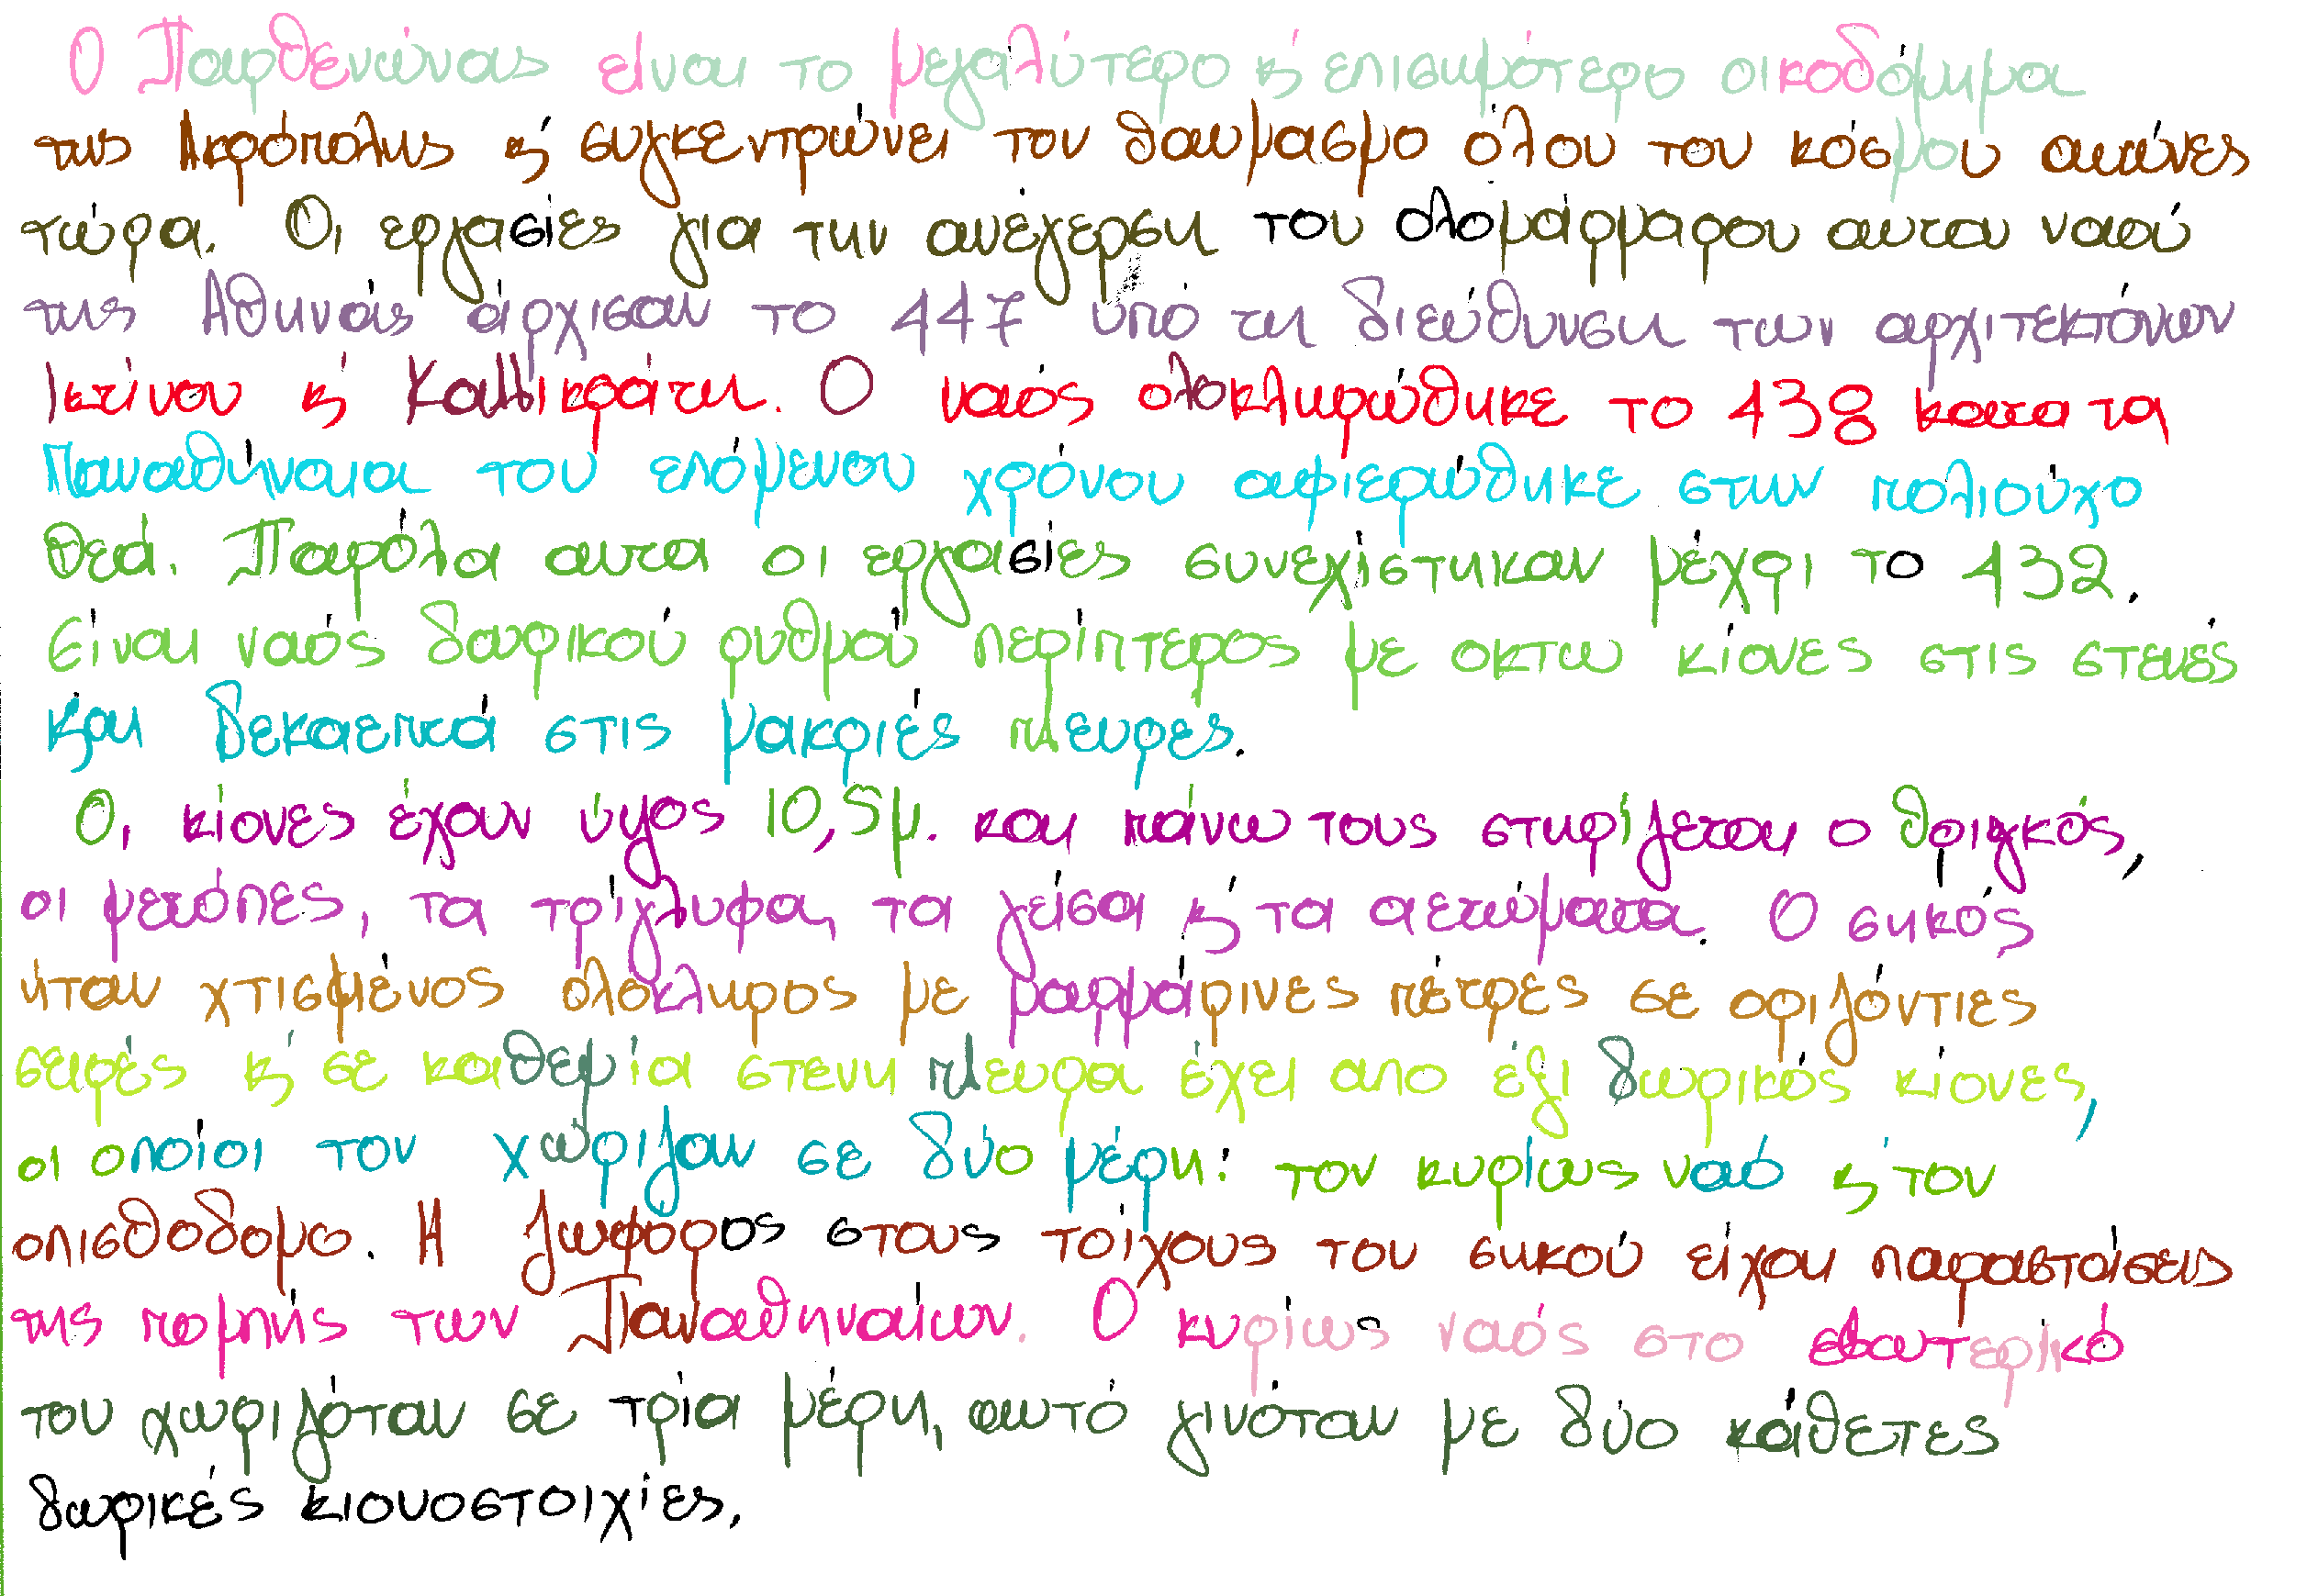 Ο Παρθενώνας είναι το μεγαλύτερο κ' επισημότερο οικοδόμημα
της Ακρόπολης κ' συγκεντρώνει τον θαυμασμο όλου του κόσμου αιώνες
τώρα. Οι εργασίες για την ανέγερση του ολομάρμαρου αυτου ναού
της Αθηνάς άρχισαν το 447 υπό τη διεύθυνση των αρχιτεκτόνων
Ικτίνου κ' Καλλικράτη. Ο ναός ολοκληρώθηκε το 438 κατα τα
Παναθήναια του επόμενου χρόνου αφιερώθηκε στην πολιούχο
θεά. Παρόλα αυτα οι εργασίες συνεχίστηκαν μέχρι το 432.
Είναι ναός δωρικού ρυθμού περίπτερος με οκτω κίονες στις στενές
και δεκαεπτά στις μακριές πλευρές.
Οι κίονες έχουν ύψος 10,5μ. και πάνω τους στηρίζεται ο θριγκός,
οι μετόπες, τα τρίγλυφα, τα γείσα κ' τα αετώματα. Ο σηκός
ήταν χτισμένος ολόκληρος με μαρμάρινες πέτρες σε οριζόντιες
σειρές κ' σε καθεμία στενη πλευρα έχει απο έξι δωρικός κίονες,
οι οποίοι τον χώριζαν σε δύο μέρη: τον κυρίως ναό κ' τον
οπισθοδομο. Η ζωφορος στους τοίχους του σηκού είχαν παραστάσεις
της πομπής των Παναθηναίων. Ο κυρίως ναός στο εσωτερικό
του χωριζόταν σε τρία μέρη, αυτό γινόταν με δύο κάθετες
δωρικές κιονοστοιχίες.